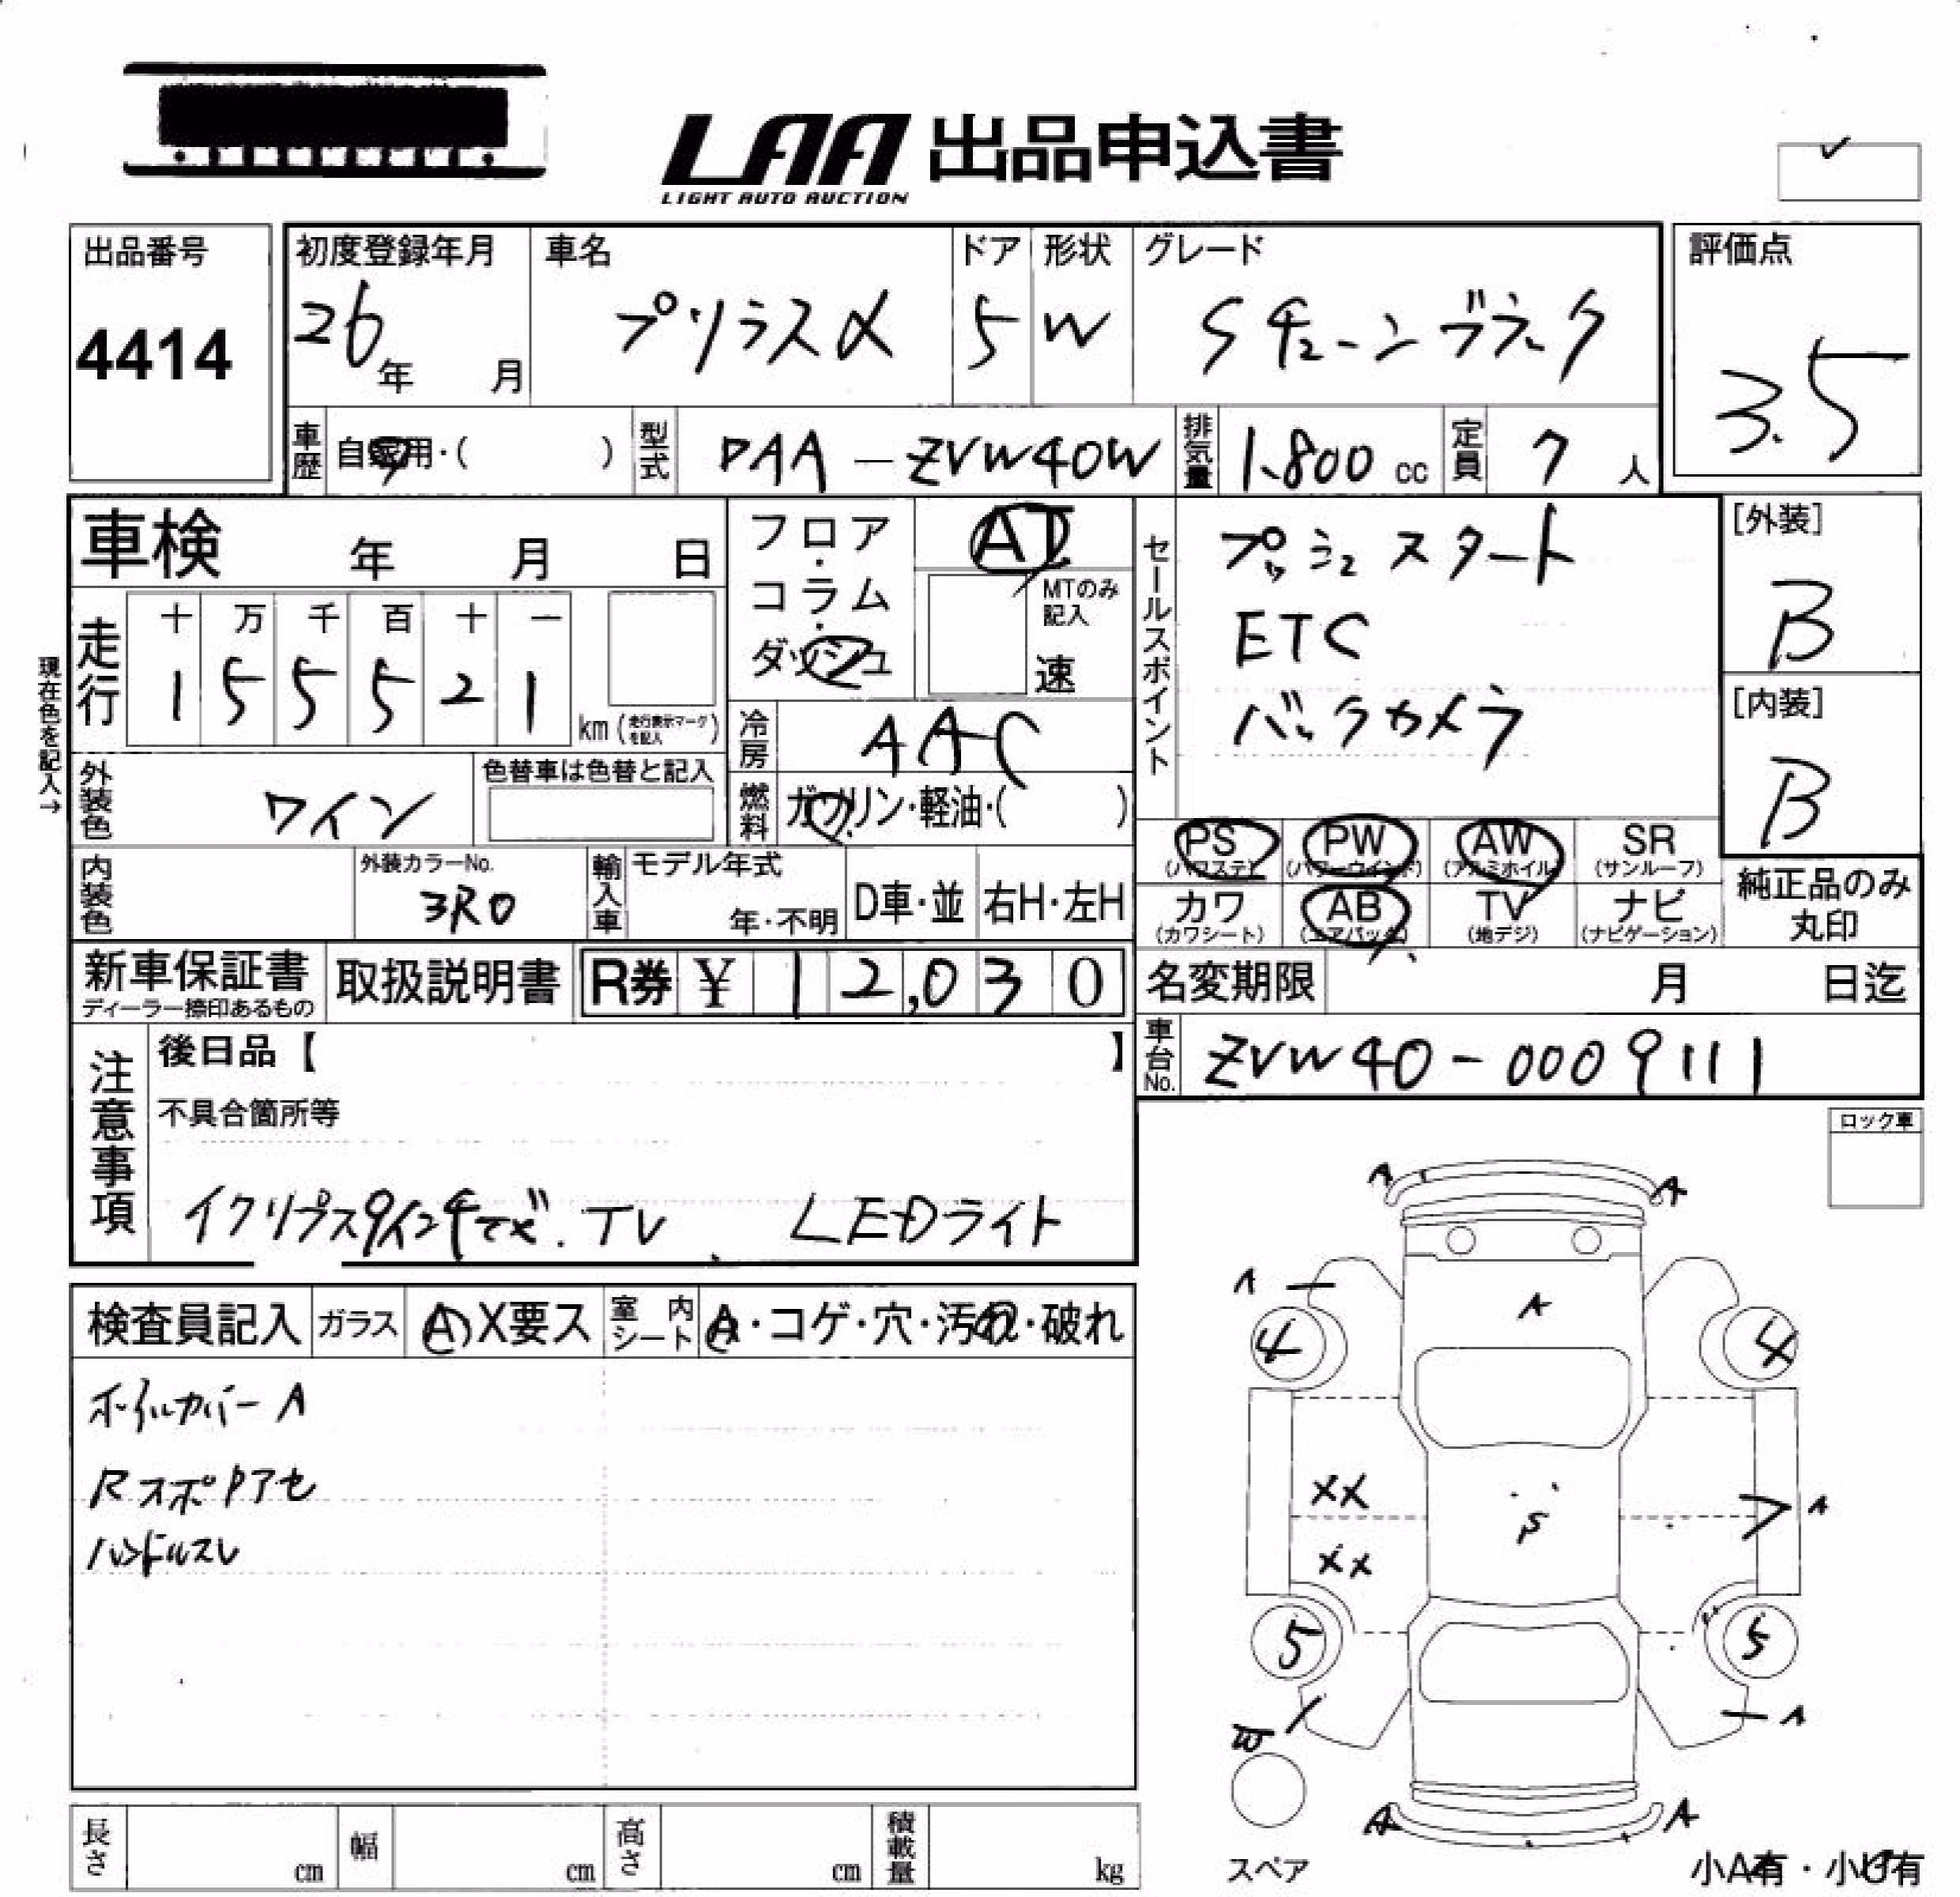 LAA 出品申込書
LIGHT AUTO AUCTION
出品番号
4414
初度登録年月
26年 月
車名
プリウスα
ドア
5
形状
W
グレード
Sチューンブラック
評価点
3.5
車歴
自家用・( )
型式
DAA-ZVW40W
排気量
1.800 cc
定員
7 人
車検 年 月 日
フロア・コラム・ダッシュ
AT
MTのみ記入
速
現在色を記入→
走行
十 万 千 百 十 一
1 5 5 5 2 1
km (走行表示マークを記入)
冷房
AAC
燃料
ガソリン・軽油・( )
外装色
ワイン
色替車は色替と記入
内装色
外装カラーNo.
3R0
輸入車
モデル年式
年・不明
D車・並
右H・左H
セールスポイント
プッシュスタート
ETC
バックカメラ
[外装]
B
[内装]
B
PS (パワステ) PW (パワーウインド) AW (アルミホイル) SR (サンルーフ)
カワ (カワシート) AB (エアバッグ) TV (地デジ) ナビ (ナビゲーション)
純正品のみ丸印
新車保証書
ディーラー捺印あるもの
取扱説明書
R券 ¥ 12,030
名変期限 月 日迄
車台No.
ZVW40-0009111
注意事項
後日品【 】
不具合箇所等
イクリプス9インチナビ.TV LEDライト
ロック車
検査員記入
ガラス
A X要ス
室内シート
A・コゲ・穴・汚れ・破れ
ホイルカバーA
RスポPアセ
ハンドルスレ
A A
A
A
4 4
XX
S
A
XX
5 5
W
A
A A
スペア
小A有・小U有
長さ cm
幅 cm
高さ cm
積載量 kg